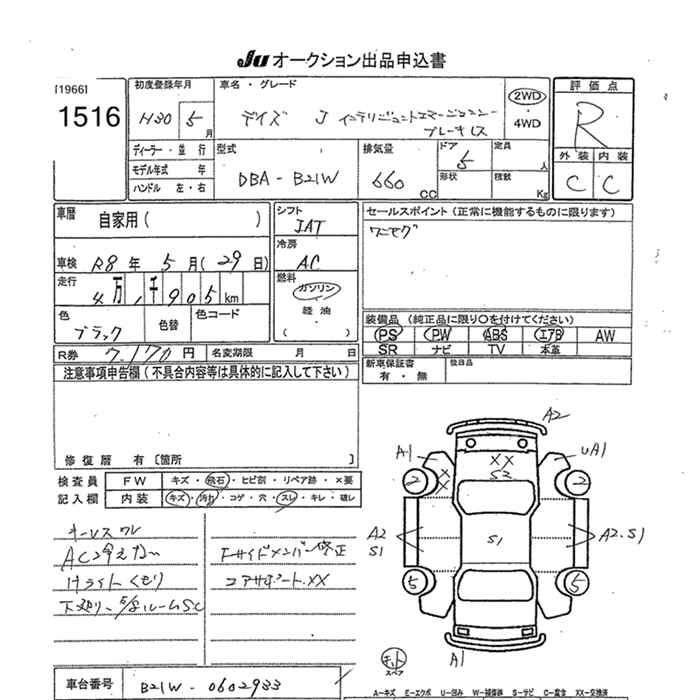 Ju オークション出品申込書
[1966]
1516
初度登録年月
H30 5月
車名・グレード
デイズ J インテリジェントエマージェンシー
ブレーキレス
2WD
4WD
評価点
R
外装 内装
C C
ディーラー・並行
モデル年式 年
ハンドル 左・右
型式
DBA-B21W
排気量
660 CC
ドア
5
定員
人
形状
積載
Kg
車歴
自家用( )
シフト
IAT
セールスポイント(正常に機能するものに限ります)
ワンセグ
車検 R8年 5月(29日)
冷房
AC
走行
4万,千905km
燃料
ガソリン
軽油
( )
色
ブラック
色替
色コード
装備品(純正品に限り○を付けてください)
PS PW ABS エアB AW
SR ナビ TV 本革
R券 7,170円 名変期限 月 日
新車保証書
有・無
後日品
注意事項申告欄(不具合内容等は具体的に記入して下さい)
修復歴 有〔箇所 〕
検査員
記入欄
FW キズ・飛石・ヒビ割・リペア跡・×要
内装 キズ・汚れ・コゲ・穴・スレ・キレ・破レ
キーレスワレ
AC冷えない
Hライトくもり
下廻り・E/gルームSC
Fサイドメンバー修正
コアサポートXX
A2
A1
UA1
XX
S2
XX
2
2
A2
S1
S1
A2.S1
5
5
A1
キット
スペア
車台番号 B21W-0602933
A-キズ E-エクボ U-凹み W-補修跡 S-サビ C-腐食 XX-交換済